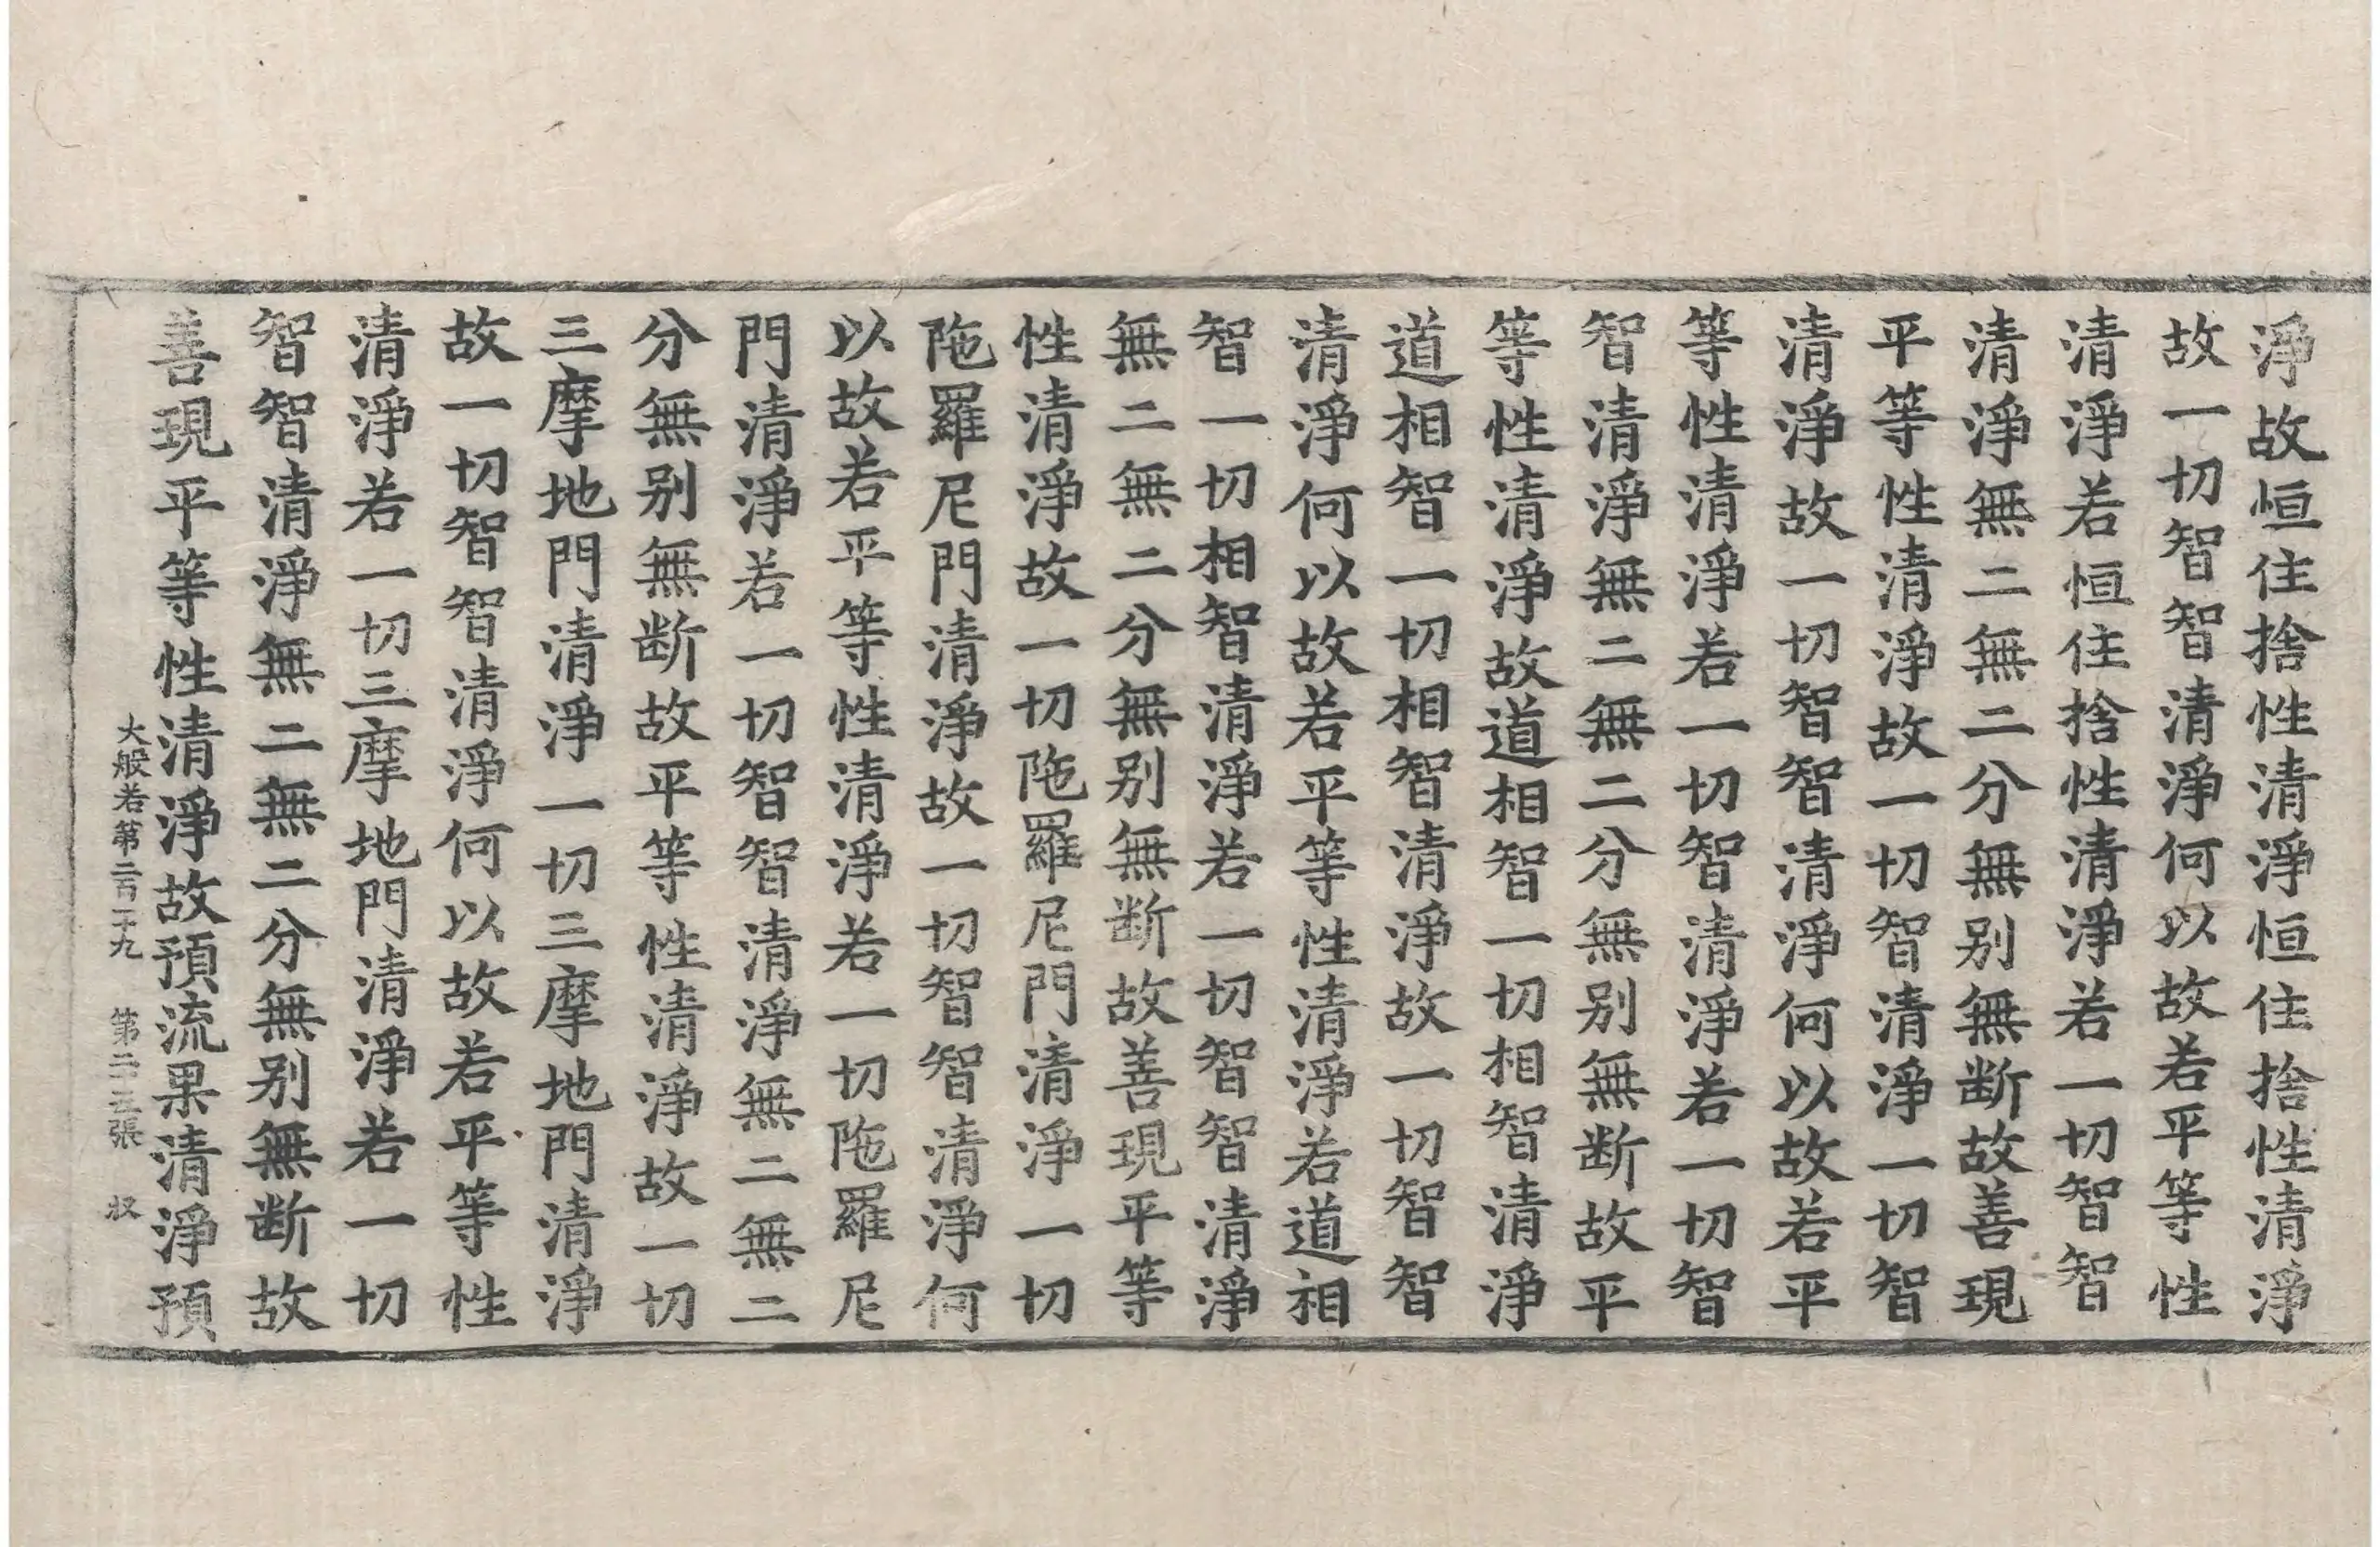 淨故恒住捨性清淨恒住捨性清淨
故一切智智清淨何以故若平等性
清淨若恒住捨性清淨若一切智智
清淨無二無二分無別無断故善現
平等性清淨故一切智清淨一切智
清淨故一切智智清淨何以故若平
等性清淨若一切智清淨若一切智
智清淨無二無二分無別無断故平
等性清淨故道相智一切相智清淨
道相智一切相智清淨故一切智智
清淨何以故若平等性清淨若道相
智一切相智清淨若一切智智清淨
無二無二分無別無断故善現平等
性清淨故一切陁羅尼門清淨一切
陁羅尼門清淨故一切智智清淨何
以故若平等性清淨若一切陁羅尼
門清淨若一切智智清淨無二無二
分無別無断故平等性清淨故一切
三摩地門清淨一切三摩地門清淨
故一切智智清淨何以故若平等性
清淨若一切三摩地門清淨若一切
智智清淨無二無二分無別無断故
善現平等性清淨故預流果清淨預
大般若第二百二十九 第二十三張 㧞